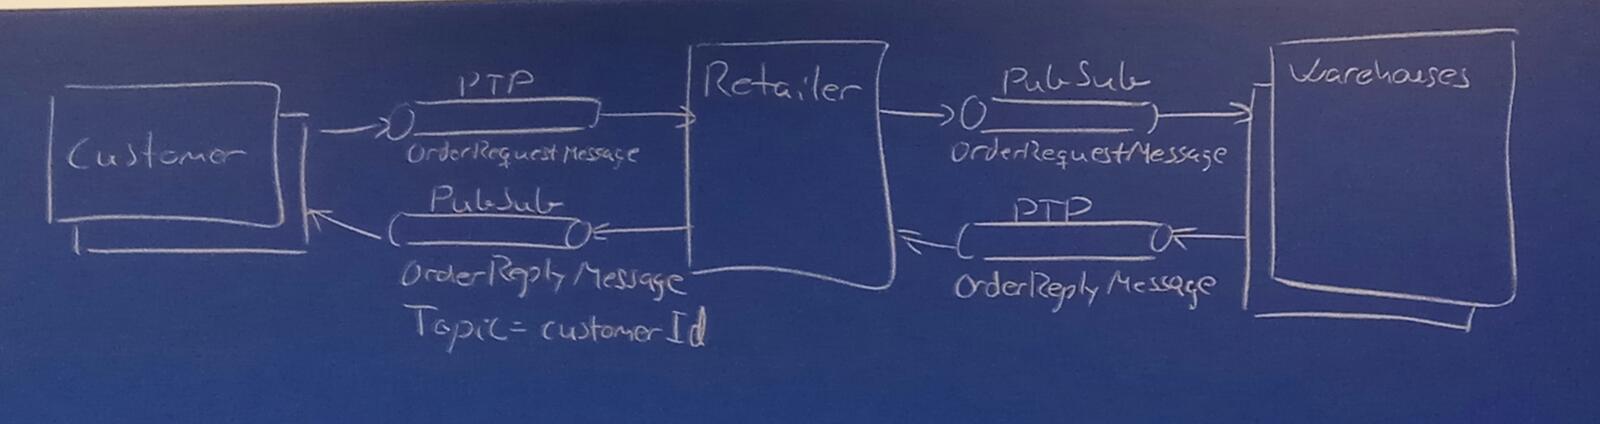 Customer
PTP
OrderRequestMessage
PubSub
OrderReplyMessage
Topic = customerId
Retailer
PubSub
OrderRequestMessage
PTP
OrderReplyMessage
Warehouses